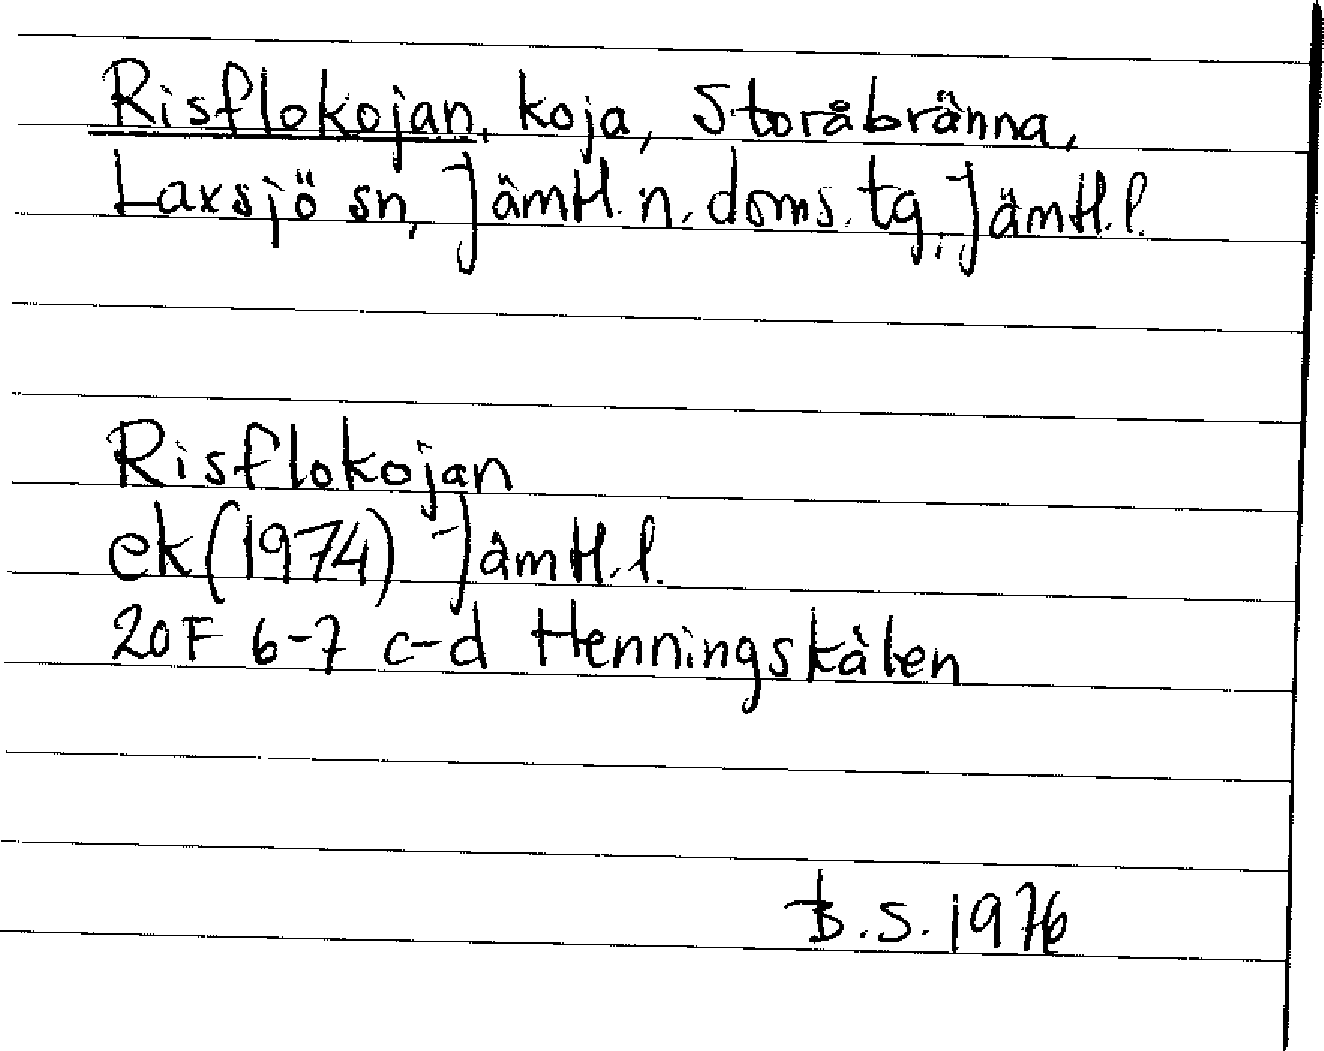 Risflokojan, koja, Storåbränna,
Laxsjö sn, Jämtl. n. doms. tg, Jämtl. l.
Risflokojan
ek (1974) Jämtl. l.
20F 6-7 c-d Henningskålen
B.S. 1976